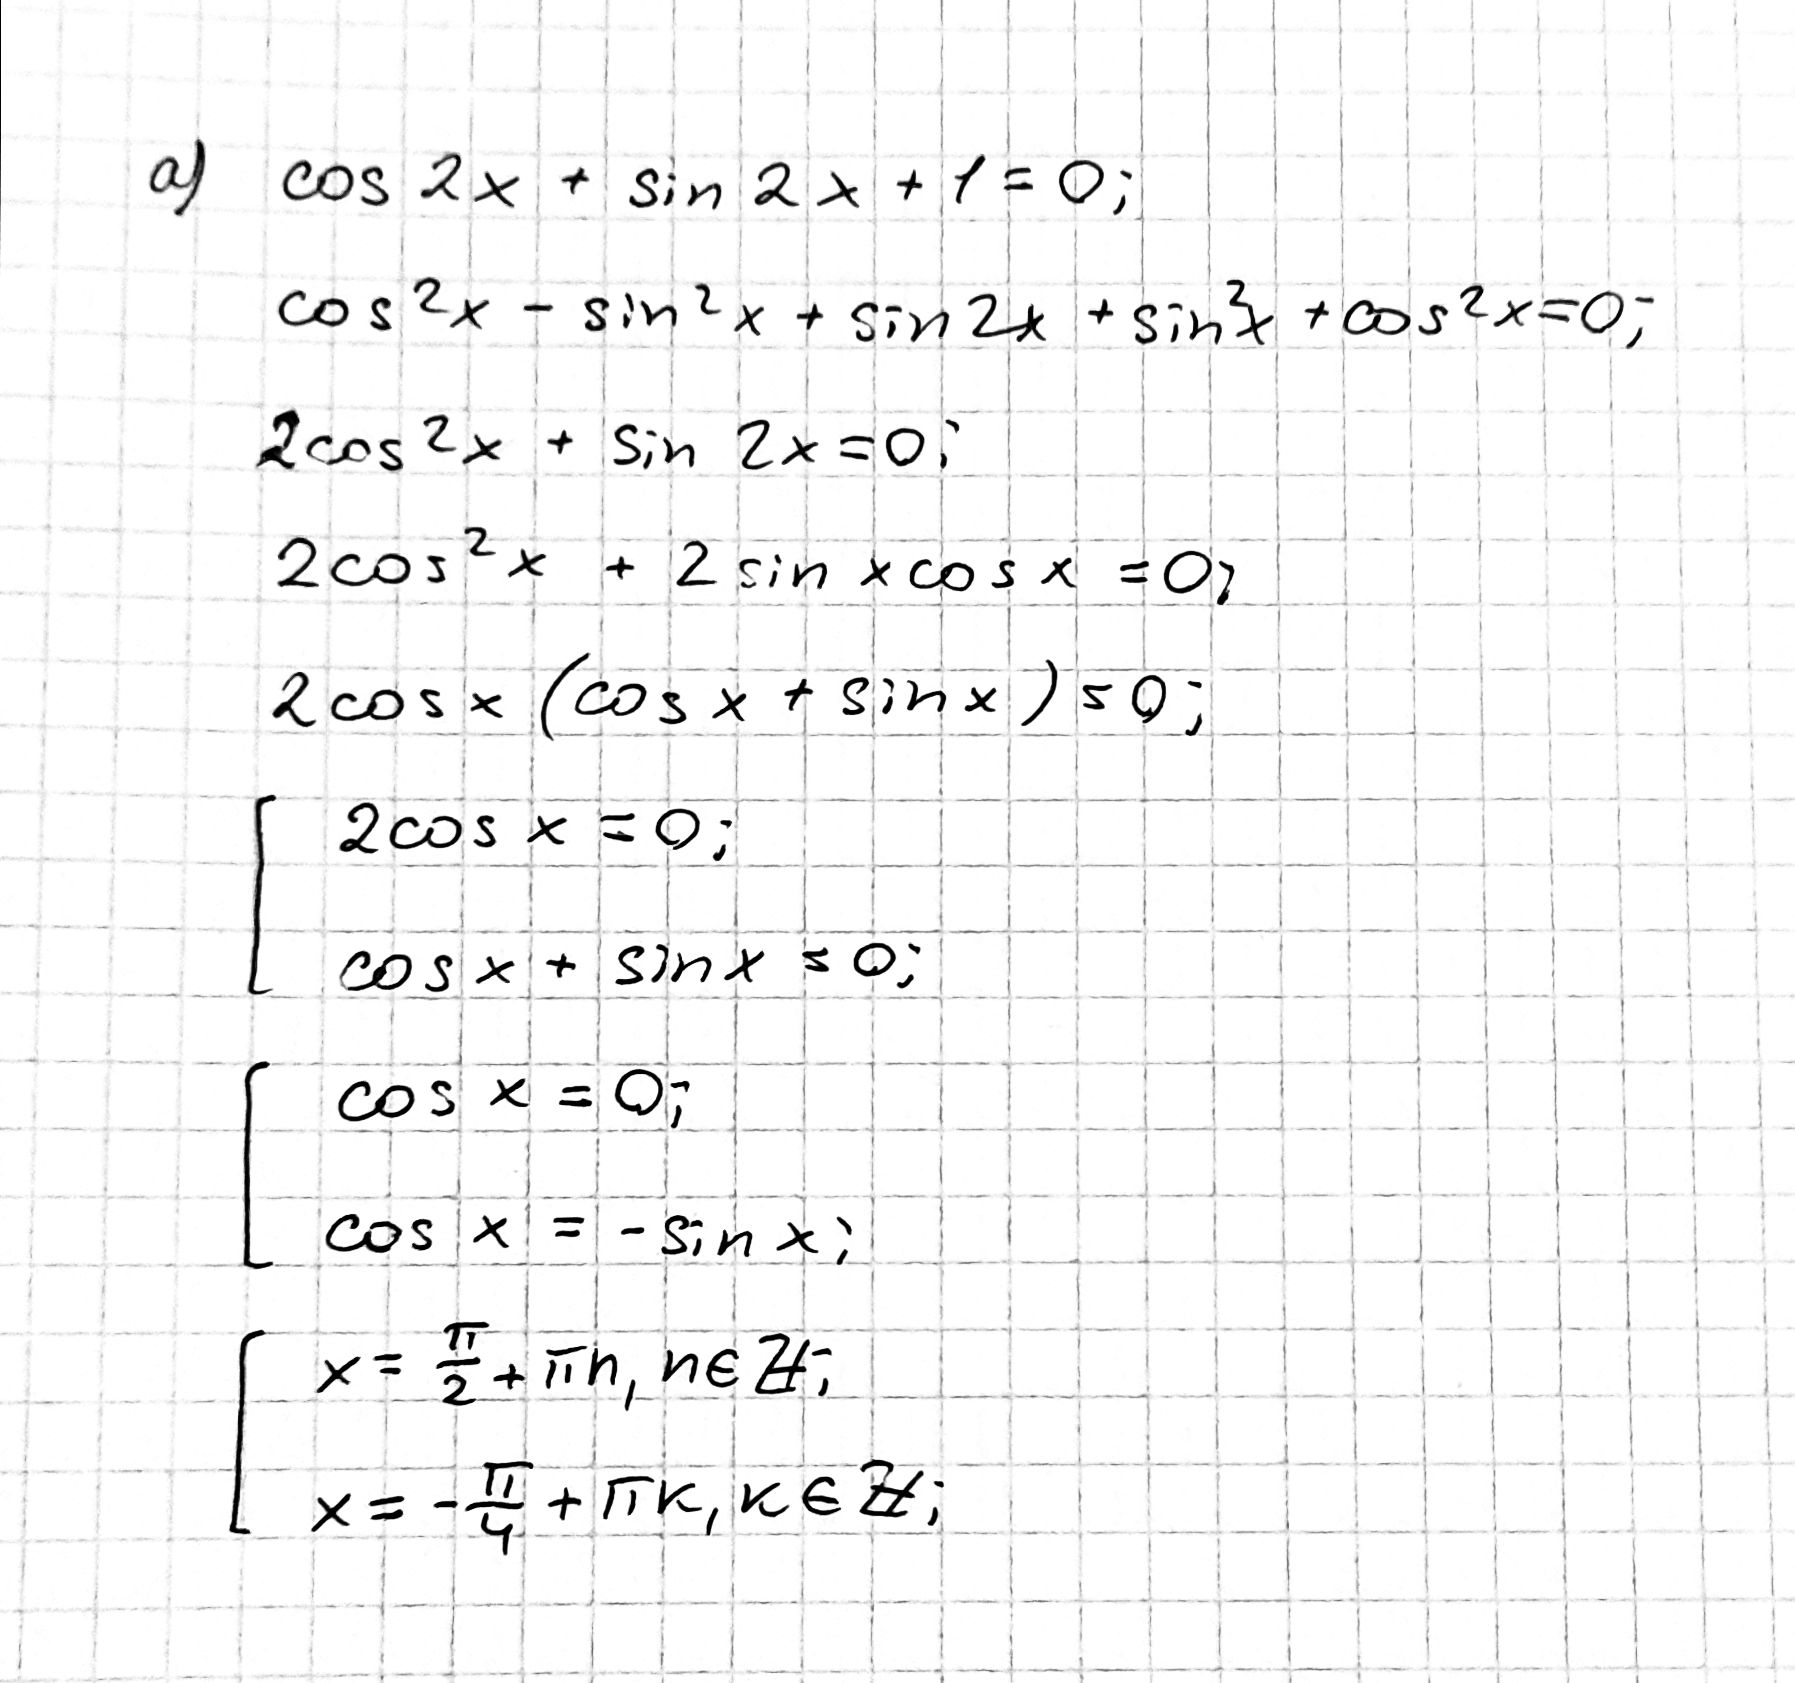 а) cos 2x + sin 2x + 1 = 0;
cos²x - sin²x + sin 2x + sin²x + cos²x = 0;
2cos²x + sin 2x = 0;
2cos²x + 2 sin x cos x = 0;
2cos x (cos x + sin x) = 0;
2cos x = 0;
cos x + sin x = 0;
cos x = 0;
cos x = -sin x;
x = π/2 + πn, n ∈ ℤ;
x = -π/4 + πk, k ∈ ℤ;